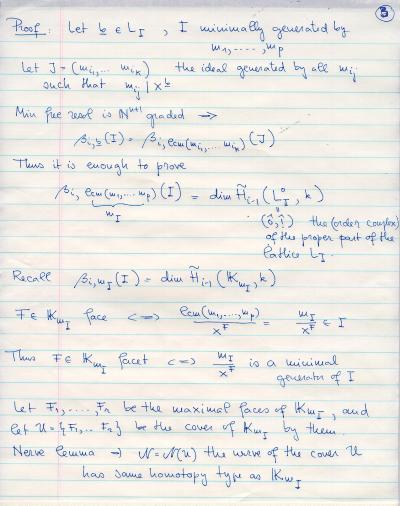 ③
Proof: Let b ∈ L_I , I minimally generated by
m_1, ...., m_p
Let J = (m_{i_1}, ... m_{i_k}) the ideal generated by all m_{ij}
such that m_{ij} | x^b
Min free resol is ℕ^{n+1} graded →
β_{i,b}(I) = β_{i, lcm(m_{i_1}, ... m_{i_k})}(J)
Thus it is enough to prove
β_{i, lcm(m_1, ... m_p)}(I) = dim H̃_{i-1}(L_I°, k)
m_I
(0̂,1̂) the (order complex)
of the proper part of the
lattice L_I.
Recall β_{i,m_I}(I) = dim H̃_{i-1}(K_{m_I}, k)
F ∈ K_{m_I} face <=> lcm(m_1, ..., m_p)/x^F = m_I/x^F ∈ I
Thus F ∈ K_{m_I} facet <=> m_I/x^F is a minimal
generator of I
Let F_1, ...., F_r be the maximal faces of K_{m_I}, and
let U = {F_1, .. F_r} be the cover of K_{m_I} by them.
Nerve lemma → N = N(U) the nerve of the cover U
has same homotopy type as K_{m_I}